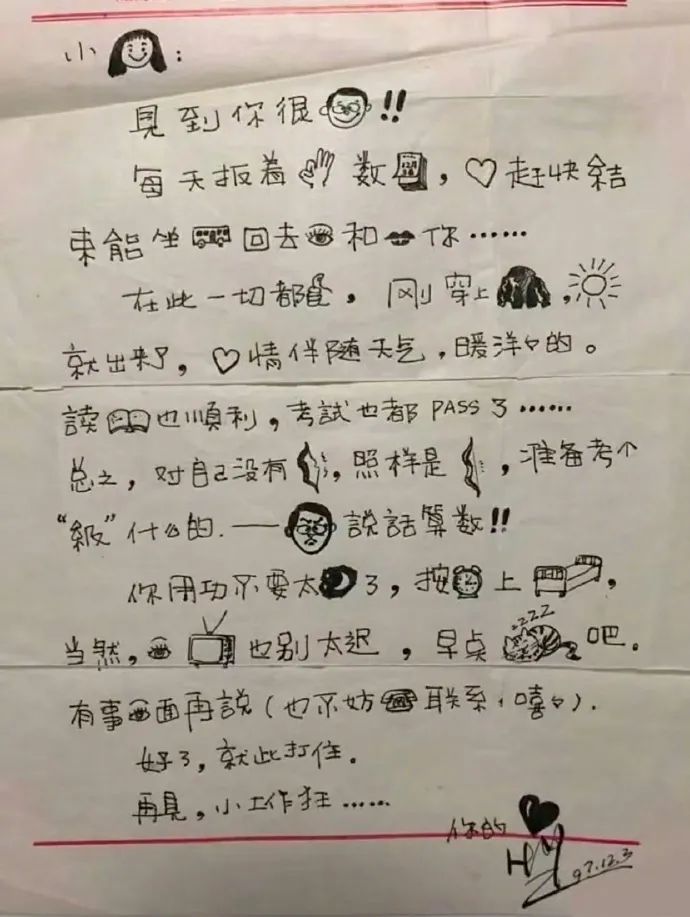 小:
見到你很!!
每天扳着数,赶快結
束能坐回去和你……
在此一切都,刚穿上,
就出来了,情伴随天气,暖洋々的。
讀也順利,考試也都PASS了……
总之,对自己没有,照样是,准备考个
“級”什么的.——説話算数!!
你用功不要太了,按上,
当然,也别太迟,早点zzzz吧.
有事面再説(也不妨联系,嘻々).
好了,就此打住.
再見,小工作狂……
你的
97.12.3